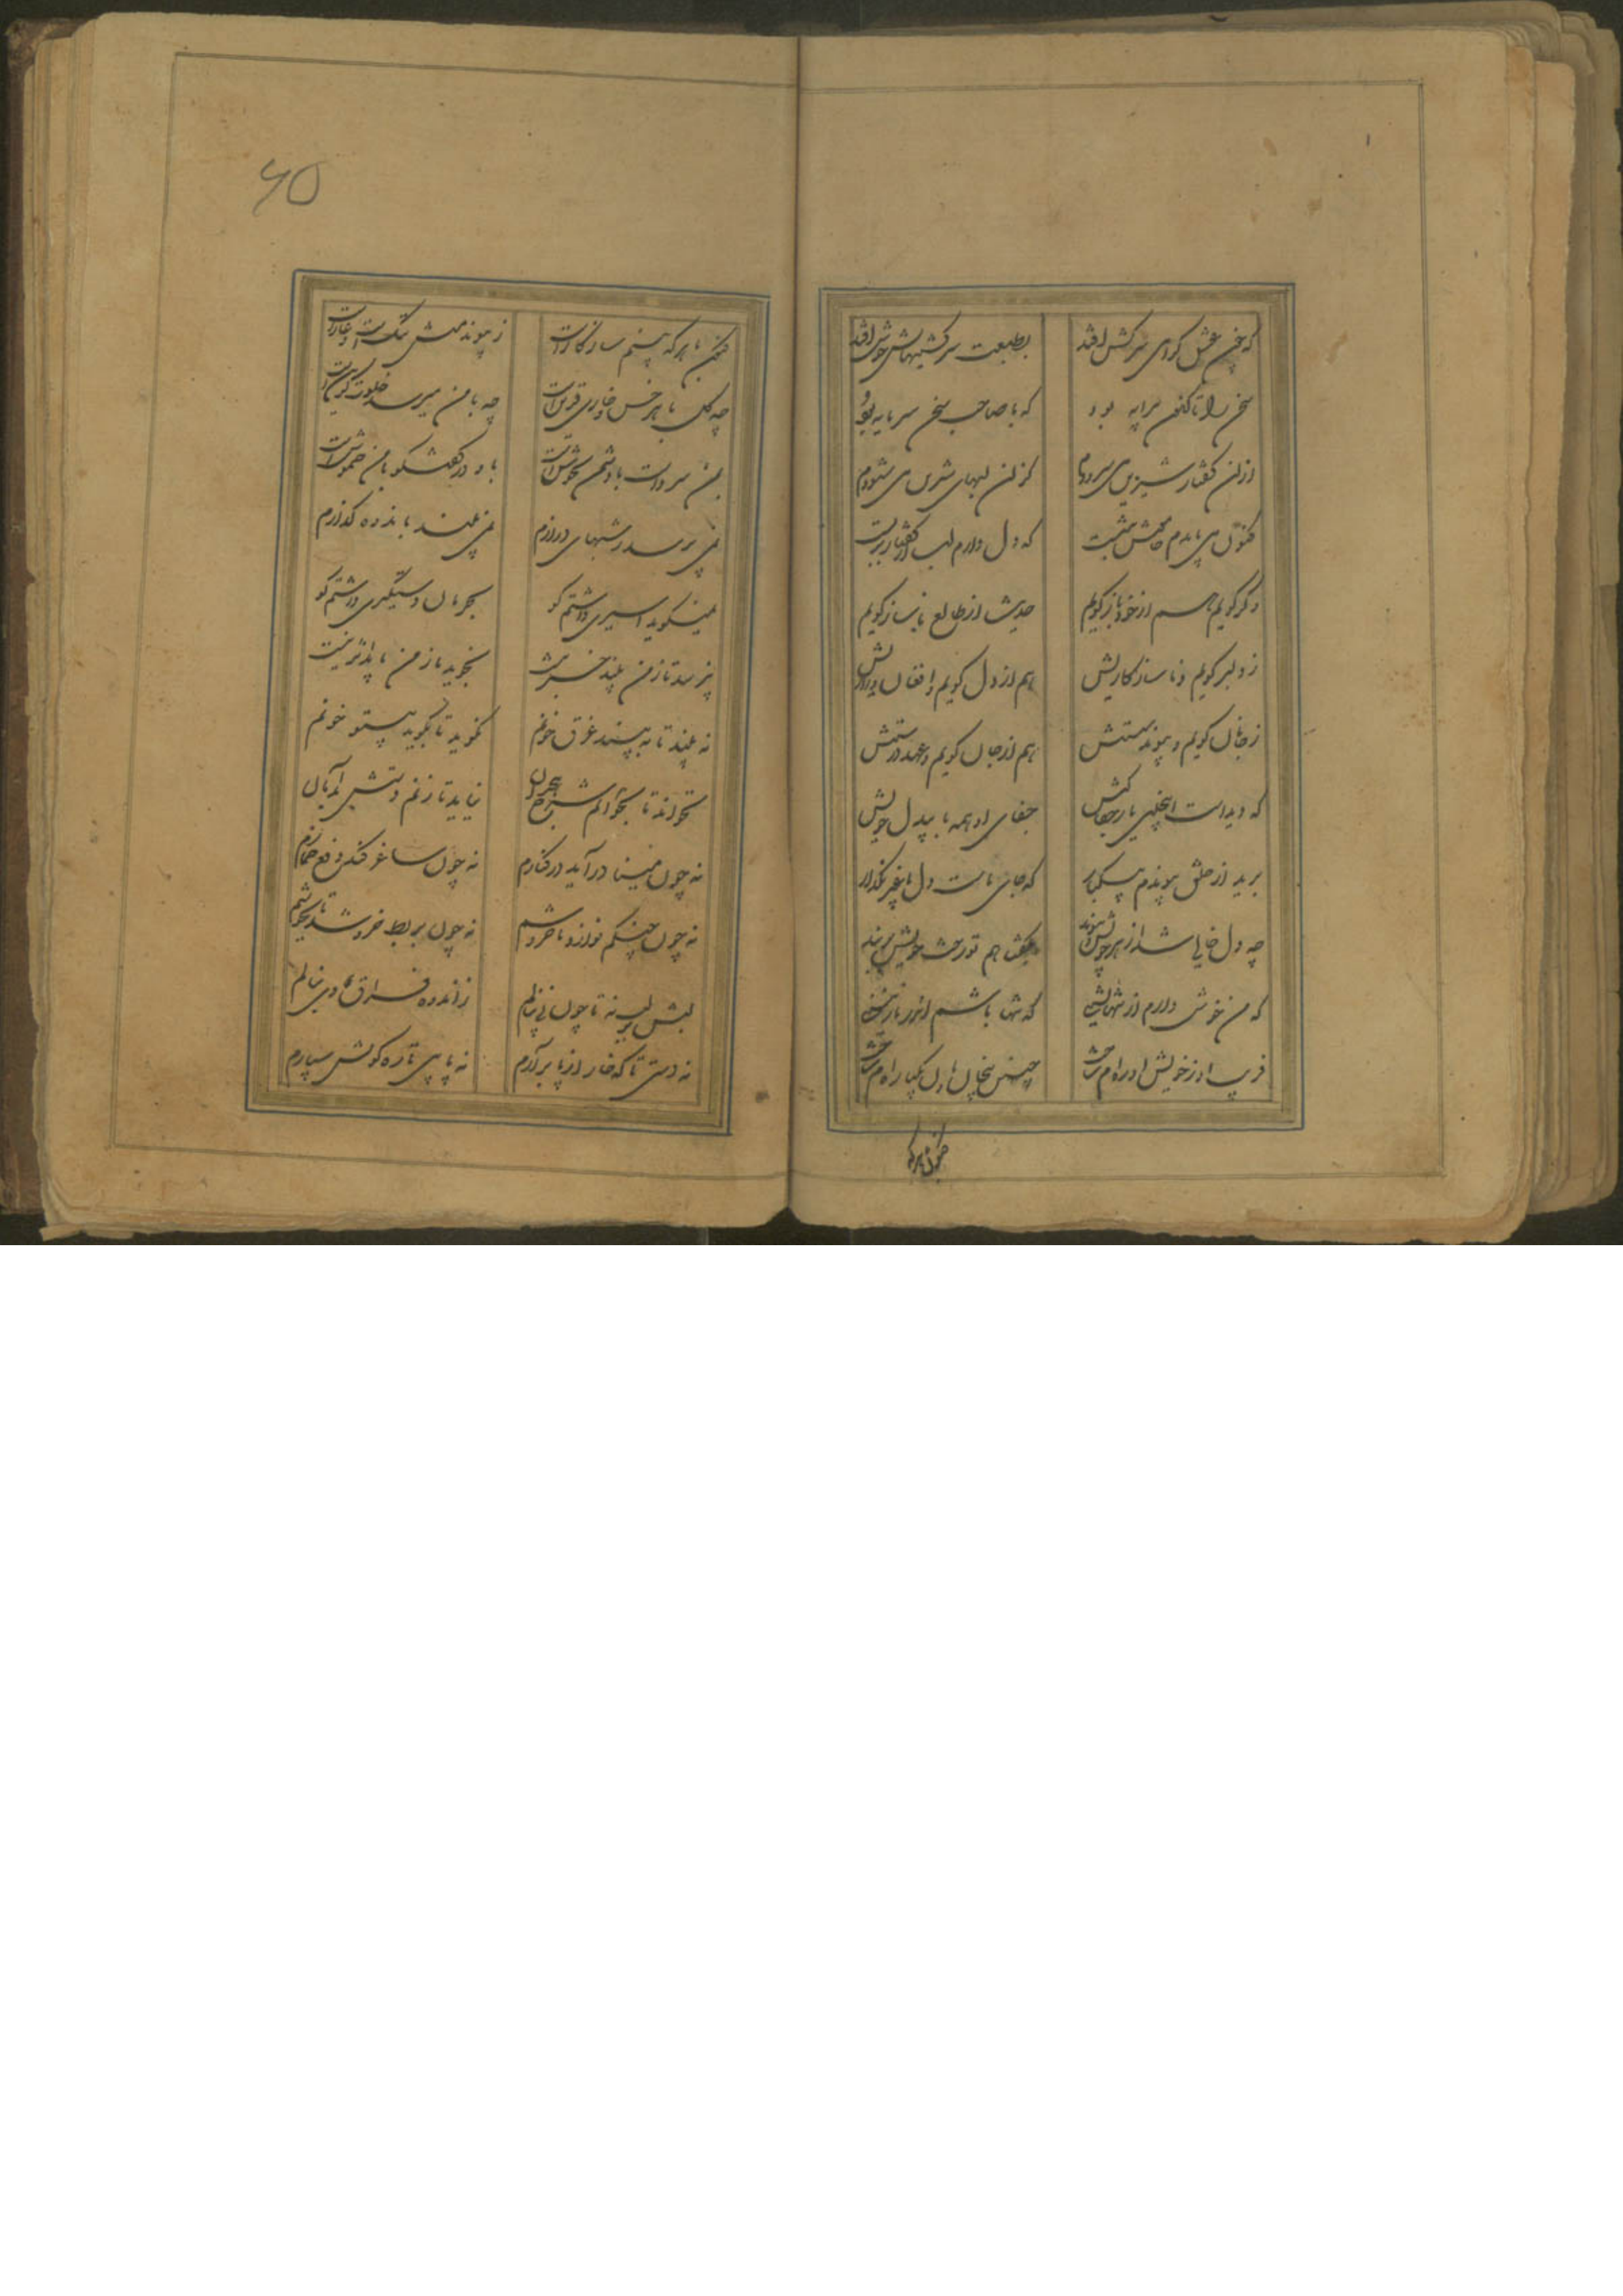 که چون عشق گرامی سرکش افتد بطبعت سرکشیهایش خوش افتد
سخن را تا کنون سرمایه بود که با صاحب سخن سرمایه بود
ازان گفتار شیرین می سرودم کزان لبهای شیرین می شنودم
کنون می بایدم خاموش بنشست که دل دارم لب از گفتار بربست
وگر گویم هم از خود باز گویم حدیث از طالع ناساز گویم
ز دلبر گویم و ناسازگاریش هم از دل گویم و افغان و زاریش
ز جانان گویم و پیوند سستش هم از جان گویم و عهد درستش
که دیدست اینچنین یار جفاکیش جفای او همه با بیدل خویش
برید از خلق پیوندم بیکبار که جای ماست دل با غیر مگذار
چو دل خالی شد از هر خویش و پیوند بگفتا هم تو رخت خویش بربند
که من خوش دارم از تنها نشینی که تنها باشم اندر نازنینی
فریب او ز خویش آواره ام ساخت چنین بیخان و مان یکباره ام ساخت
کنون با هر که
۶۵
کنون با هر که بینم سازگارست ز پیوند منش ننگست و عارست
چه گل با هر خس و خاری قرینست چه با من میرسد خلوت گزینست
بمن سردست با دشمن بجوشست باو در گفتگو با من خموشست
نمی پرسد ز شبهای درازم نمی بیند باندوه گدازم
نمیگوید اسیری داشتم کو بحرمان دستگیری داشتم کو
نپرسد تا ز من بیند خبر نیست نجوید باز من یا بد اثر نیست
نه بیند تا به بیند غرق خونم نگوید تا بگوید بیستونم
نخواند تا بخوانم شرح هجران نیاید تا زنم دستش بدامان
نه چون مینا در آید در کنارم نه چون ساغر کند دفع خمارم
نه چون چنگم نوازد تا خروشم نه چون بربط خروشد تا بجوشم
لبش بر لب نه تا چون نی بنالم ز اندوه فراق وی بنالم
نه دستی تا که خار از پا برآرم نه پایی تا ره کویش سپارم